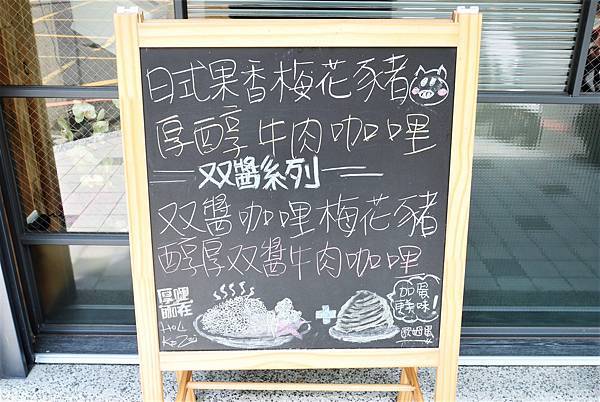 日式果香梅花豬
厚醇牛肉咖哩
双醬系列
双醬咖哩梅花豬
醇厚双醬牛肉咖哩
厚哩
咖在
HOLi
KaZai
加蛋
賺味！